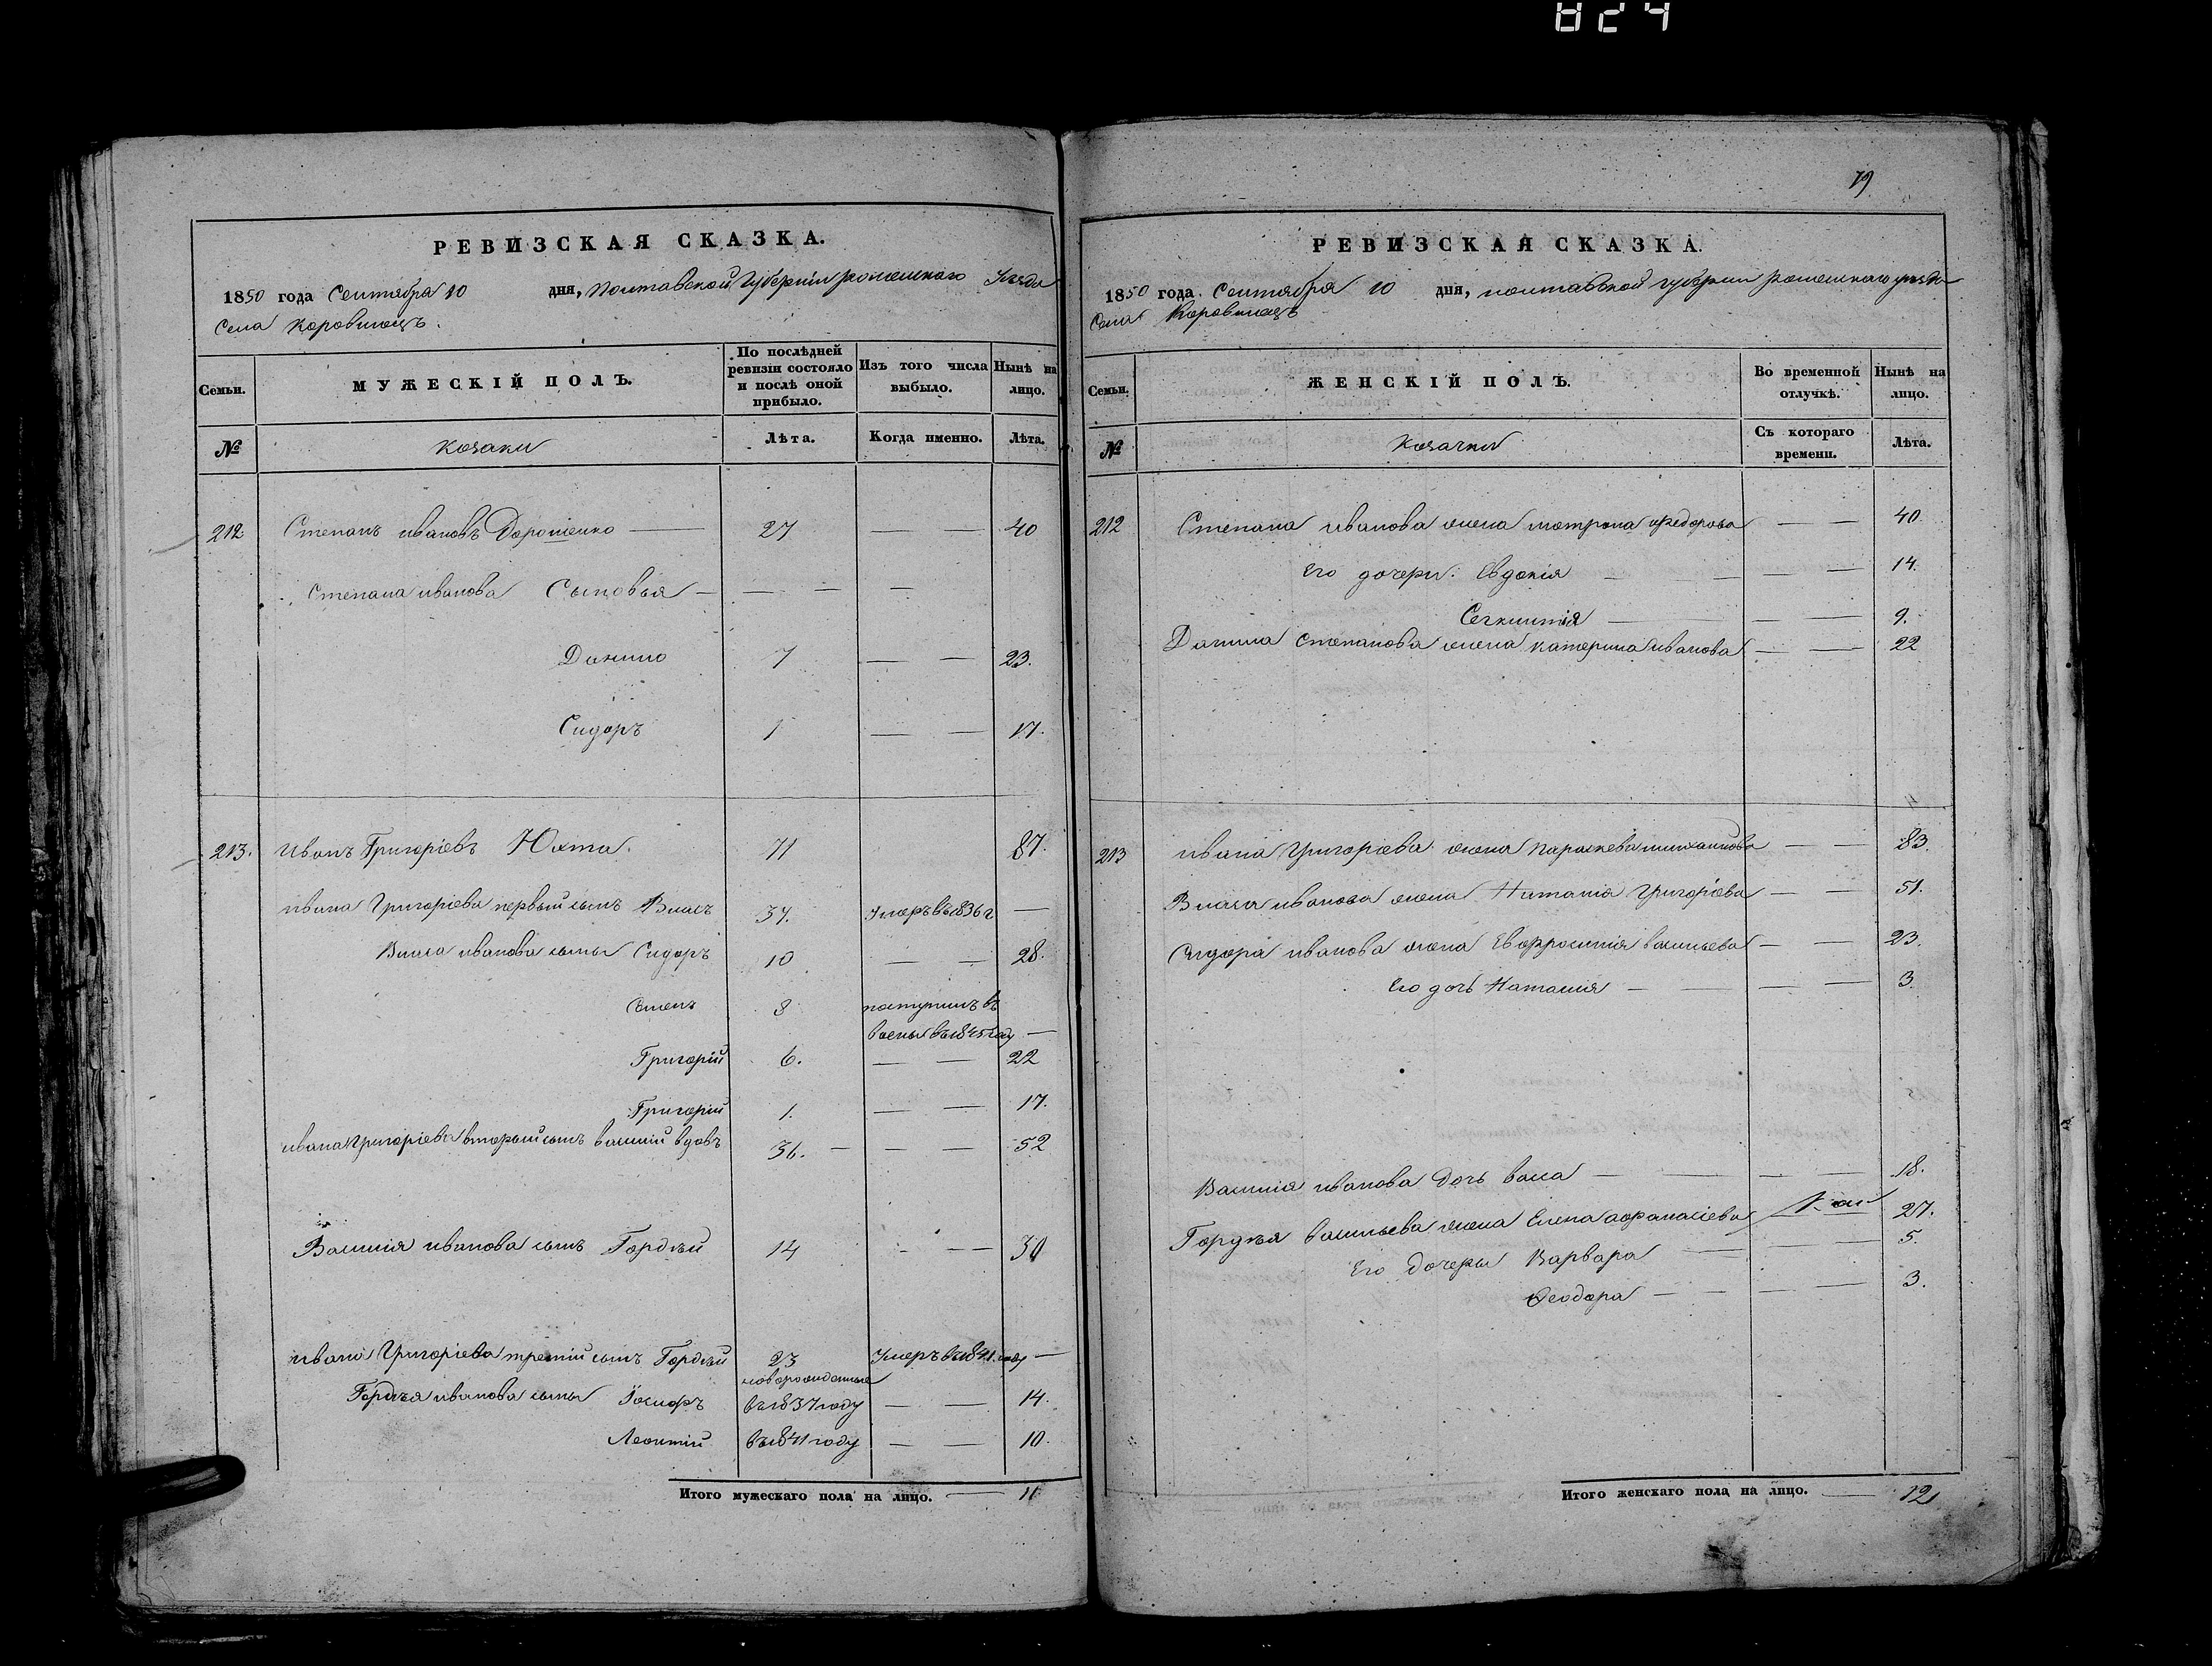 824
РЕВИЗСКАЯ СКАЗКА.
1850 года Сентября 10 дня, Полтавской Губернии роменского Уезда
Села Коровинецъ.
Семьи.
МУЖЕСКІЙ ПОЛЪ.
По послѣдней ревизіи состояло и послѣ оной прибыло.
Изъ того числа выбыло.
Нынѣ на лицо.
№
козаки
Лѣта.
Когда именно.
Лѣта.
212 Степанъ ивановъ Дорошенко — 27 — — 40
Степана иванова Сыновья — — — —
Данило 7 — — 23.
Сидоръ 1 — — 17.
213. Иванъ Григоріевъ Юхта. 71 87.
ивана Григоріева первый сынъ Власъ 37. Умеръ въ 1836 г —
Власа иванова сыны Сидоръ 10 — — 28.
Семенъ 8 поступилъ въ
въ 1845 году —
Григорій 6. — — 22
Григорій 1. — — 17.
ивана Григоріева вторый сынъ василій вдовъ 36. — — — 52
Василія иванова сынъ Гордѣй 14 - — — 30
ивана Григоріева третій сынъ Гордѣй 23 Умеръ въ 1841 году —
новорожденные
Гордѣя иванова сыны Іосифъ въ 1837 году — — 14.
Леонтій въ 1841 году — — 10.
Итого мужескаго пола на лицо. — 11
79
РЕВИЗСКАЯ СКАЗКА.
1850 года Сентября 10 дня, полтавской губернии роменского уезда
Села Коровинецъ
Семьи.
ЖЕНСКІЙ ПОЛЪ.
Во временной отлучкѣ.
Нынѣ на лицо.
№
Козачки
Съ котораго времени.
Лѣта.
212 Степана иванова жена мотрона федорова — — 40.
Его дочери: Евдокія — — — — 14.
— — — 9.
Данила степанова жена катерина иванова — — 22
213 ивана Григоріева жена параскева михаилова — — 83.
Власа иванова жена Наталія Григоріева — — 51.
Сидора иванова жена Евфросинія васильева — — 23.
Его дочь Наталия — — — — 3.
Василія иванова дочь васса — — — — 18.
Гордѣя васильева жена Елена афанасіева 27.
Его дочеры Варвара — — — 5.
Феодора — — — — 3.
Итого женскаго пола на лицо. — 12